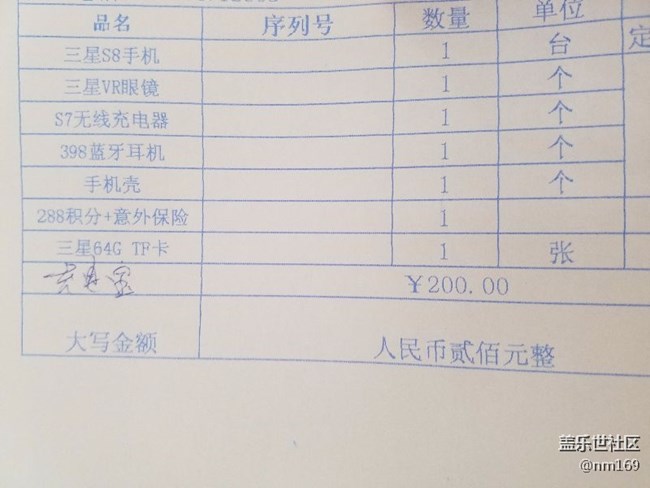 品名 序列号 数量 单位 定
三星S8手机 1 台
三星VR眼镜 1 个
S7无线充电器 1 个
398蓝牙耳机 1 个
手机壳 1 个
288积分+意外保险 1
三星64G TF卡 1 张
¥200.00
大写金额 人民币贰佰元整
盖乐世社区
@nm169